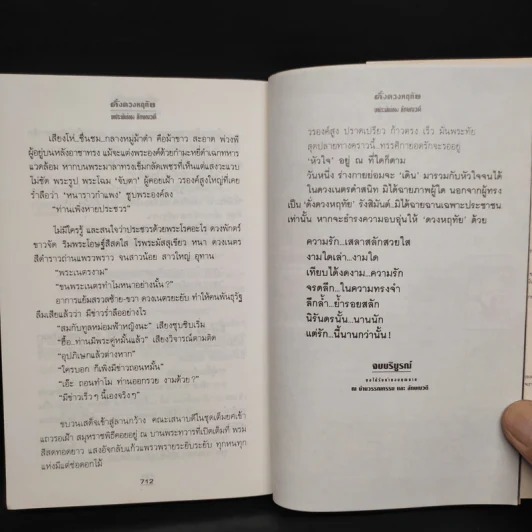 ดั่งดวงหฤทัย
เสียงโห่..ชื่นชม..กลางหมู่ม้าดำ คือม้าขาว สะอาด พ่วงพี
ผู้อยู่บนหลังอาชาทรง แม้จะแต่งพระองค์ด้วยกำมะหยี่ดำเฉกทหาร
แวดล้อม หากบนพระมาลาทรงขนนกเข้มกลัดเพชรที่เห็นแต่แสงวะแวบ
ไม่ชัด พระรูป พระโฉม 'จับตา' ผู้คอยเฝ้า วรองค์สูงใหญ่ที่เคย
ร่ำลือว่า "หนาราวกำแพง" ซูบพระองค์ลง
"ท่านเพิ่งหายประชวร"
ไม่มีใครรู้ และสนใจว่าประชวรด้วยพระโรคอะไร ดวงพักตร์
ขาวจัด ริมพระโอษฐ์สีสดใส ไรพระมัสสุเขียว หนา ดวงเนตร
สีดำราวถ่านแพรวพราว จนสาวน้อย สาวใหญ่ อุทาน
"พระเนตรงาม"
"ขนพระเนตรทำไมหนาอย่างนั้น ?"
อาการแย้มสรวลซ้าย-ขวา ดวงเนตรยะยับ ทำให้คนพันธุรัฐ
ลืมเสียแล้วว่า มีข่าวร่ำลืออย่างไร
"สมกับทูลหม่อมฟ้าหญิงนะ" เสียงซุบซิบเริ่ม
"ฮื้อ..ท่านมีพระคู่หมั้นแล้ว" เสียงวิจารณ์ตามติด
"อุปภิเษกแล้วต่างหาก"
"ใครบอก ก็เพิ่งมีข่าวถอนหมั้น"
"เอ๊ะ ถอนทำไม ท่านออกรวย งามด้วย ?"
"มีข่าวเร็วๆ นี้เองจริงๆ"
ขบวนเสด็จเข้าสู่ลานกว้าง คณะเสนาบดีในชุดเต็มยศเข้า
แถวรอเฝ้า สมุหราชพิธีคอยอยู่ ณ บานพระทวารที่เปิดเต็มที่ พรม
สีสดทอดยาว แสงอัจกลับแก้วแพรวพรายระยิบระยับ ทุกหนทุก
แห่งมีแต่ช่อดอกไม้
712
ดั่งดวงหฤทัย
วรองค์สูง ปราดเปรียว ก้าวตรง เร็ว มั่นพระทัย
สุดปลายทางคราวนี้ ..ทรรศิกายอดรักจะรออยู่
'หัวใจ' อยู่ ณ ที่ใดก็ตาม
วันหนึ่ง ร่างกายย่อมจะ 'เดิน' มารวมกับหัวใจจนได้
ในดวงเนตรดำสนิท มิได้ฉายภาพผู้ใด นอกจากผู้ทรง
เป็น 'ดั่งดวงหฤทัย' รังสิมันต์..มิได้ฉายฉานเฉพาะประชาชน
เท่านั้น หากจะธำรงความอบอุ่นให้ 'ดวงหฤทัย' ด้วย
ความรัก..เสลาสลักสวยใส
งามใดเล่า..งามใด
เทียบได้งดงาม..ความรัก
จรดลึก..ในความทรงจำ
ลึกล้ำ..ย้ำรอยสลัก
นิรันดรนั้น..นานนัก
แต่รัก..นี้นานกว่านั้น !
จบบริบูรณ์